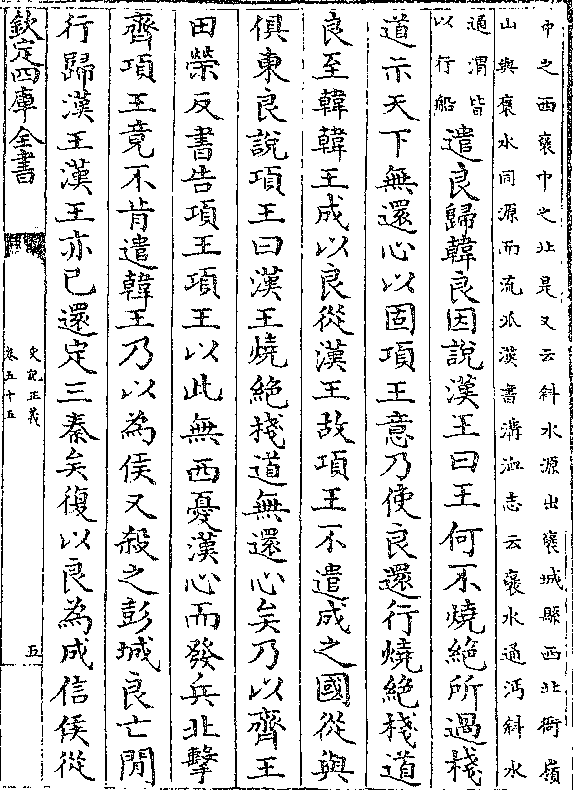 中之西襃中之北是又云斜水源出襃城縣西北衙嶺
山與襃水同源而流派漢書溝洫志云襃水通沔斜水
通渭皆
以行船
遣良歸韓良因說漢王曰王何不燒絶所過棧
道示天下無還心以固項王意乃使良還行燒絶棧道
良至韓韓王成以良從漢王故項王不遣成之國從與
俱東良說項王曰漢王燒絶棧道無還心矣乃以齊王
田榮反書告項王項王以此無西憂漢心而發兵北擊
齊項王竟不肯遣韓王乃以為侯又殺之彭城良亡間
行歸漢王漢王亦已還定三秦矣復以良為成信侯從
欽定四庫全書
史記正義
卷五十五
五